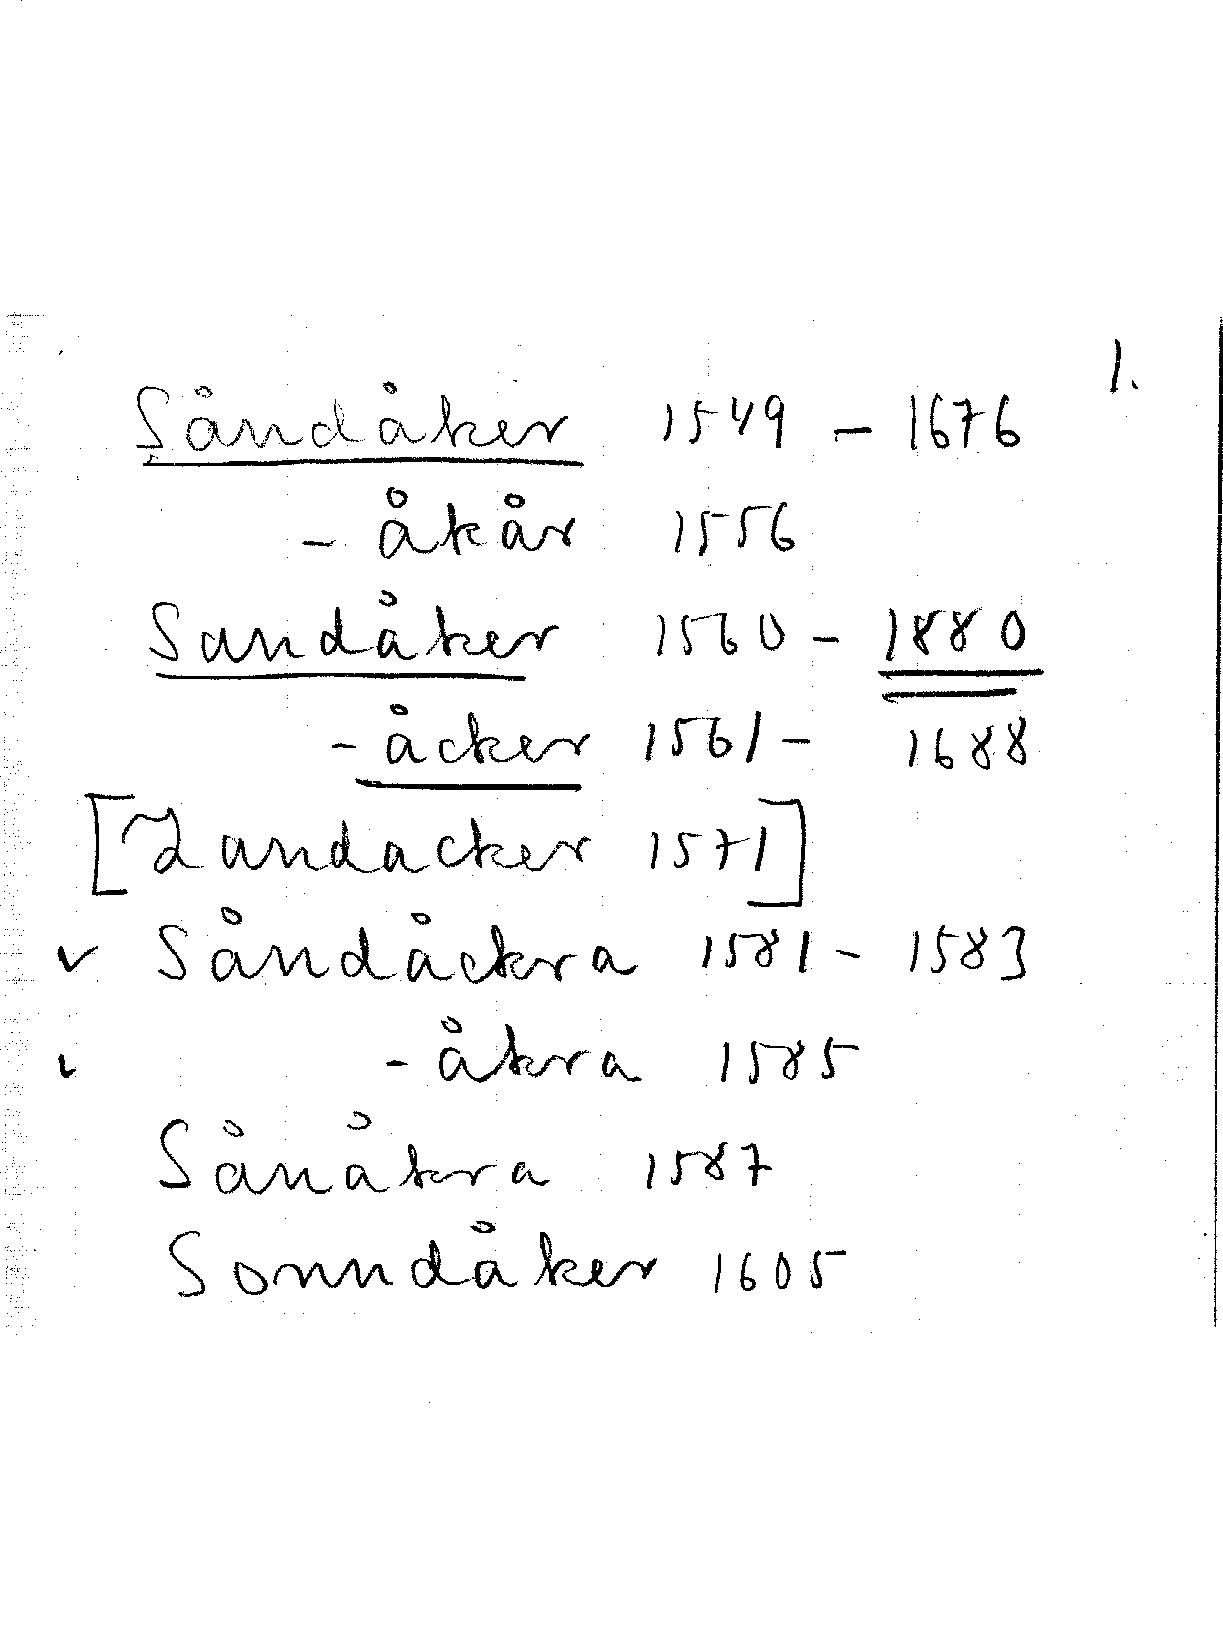 1.
Såndåker 1549 - 1676
- åkår 1556
Sandåker 1560 - 1880
- åcker 1561 - 1688
[Zandacker 1571]
v Såndåckra 1581 - 1583
- åkra 1585
Sånåkra 1587
Sonndåker 1605